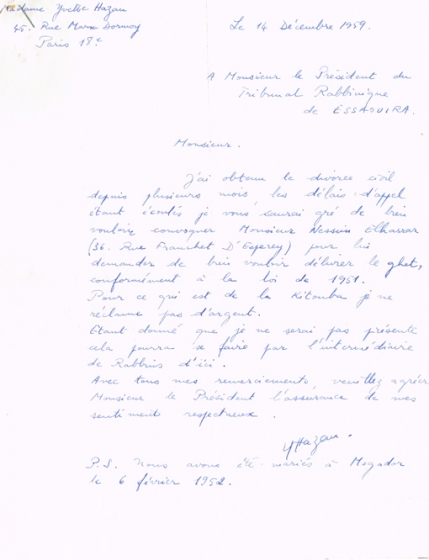 Madame Yvette Hazan
45. Rue Marx Dormoy
Paris 18e
Le 14 Décembre 1959.
A Monsieur le Président du
Tribunal Rabbinique
de ESSAOUIRA.
Monsieur.
J'ai obtenu le divorce civil
depuis plusieurs mois, les délais d'appel
étant écoulés je vous saurai gré de bien
vouloir convoquer Monsieur Nessim Elharrar
(36. Rue Franchet D'Esperey) pour lui
demander de bien vouloir délivrer le ghet,
conformément à la loi de 1951.
Pour ce qui est de la Kitouba je ne
réclame pas d'argent.
Etant donné que je ne serai pas présente
cela pourra se faire par l'intermédiaire
de Rabbins d'ici.
Avec tous mes remerciements, veuillez agréer
Monsieur le Président l'assurance de mes
sentiments respectueux.
YHazan.
P.S. Nous avons été mariés à Mogador
le 6 février 1952.